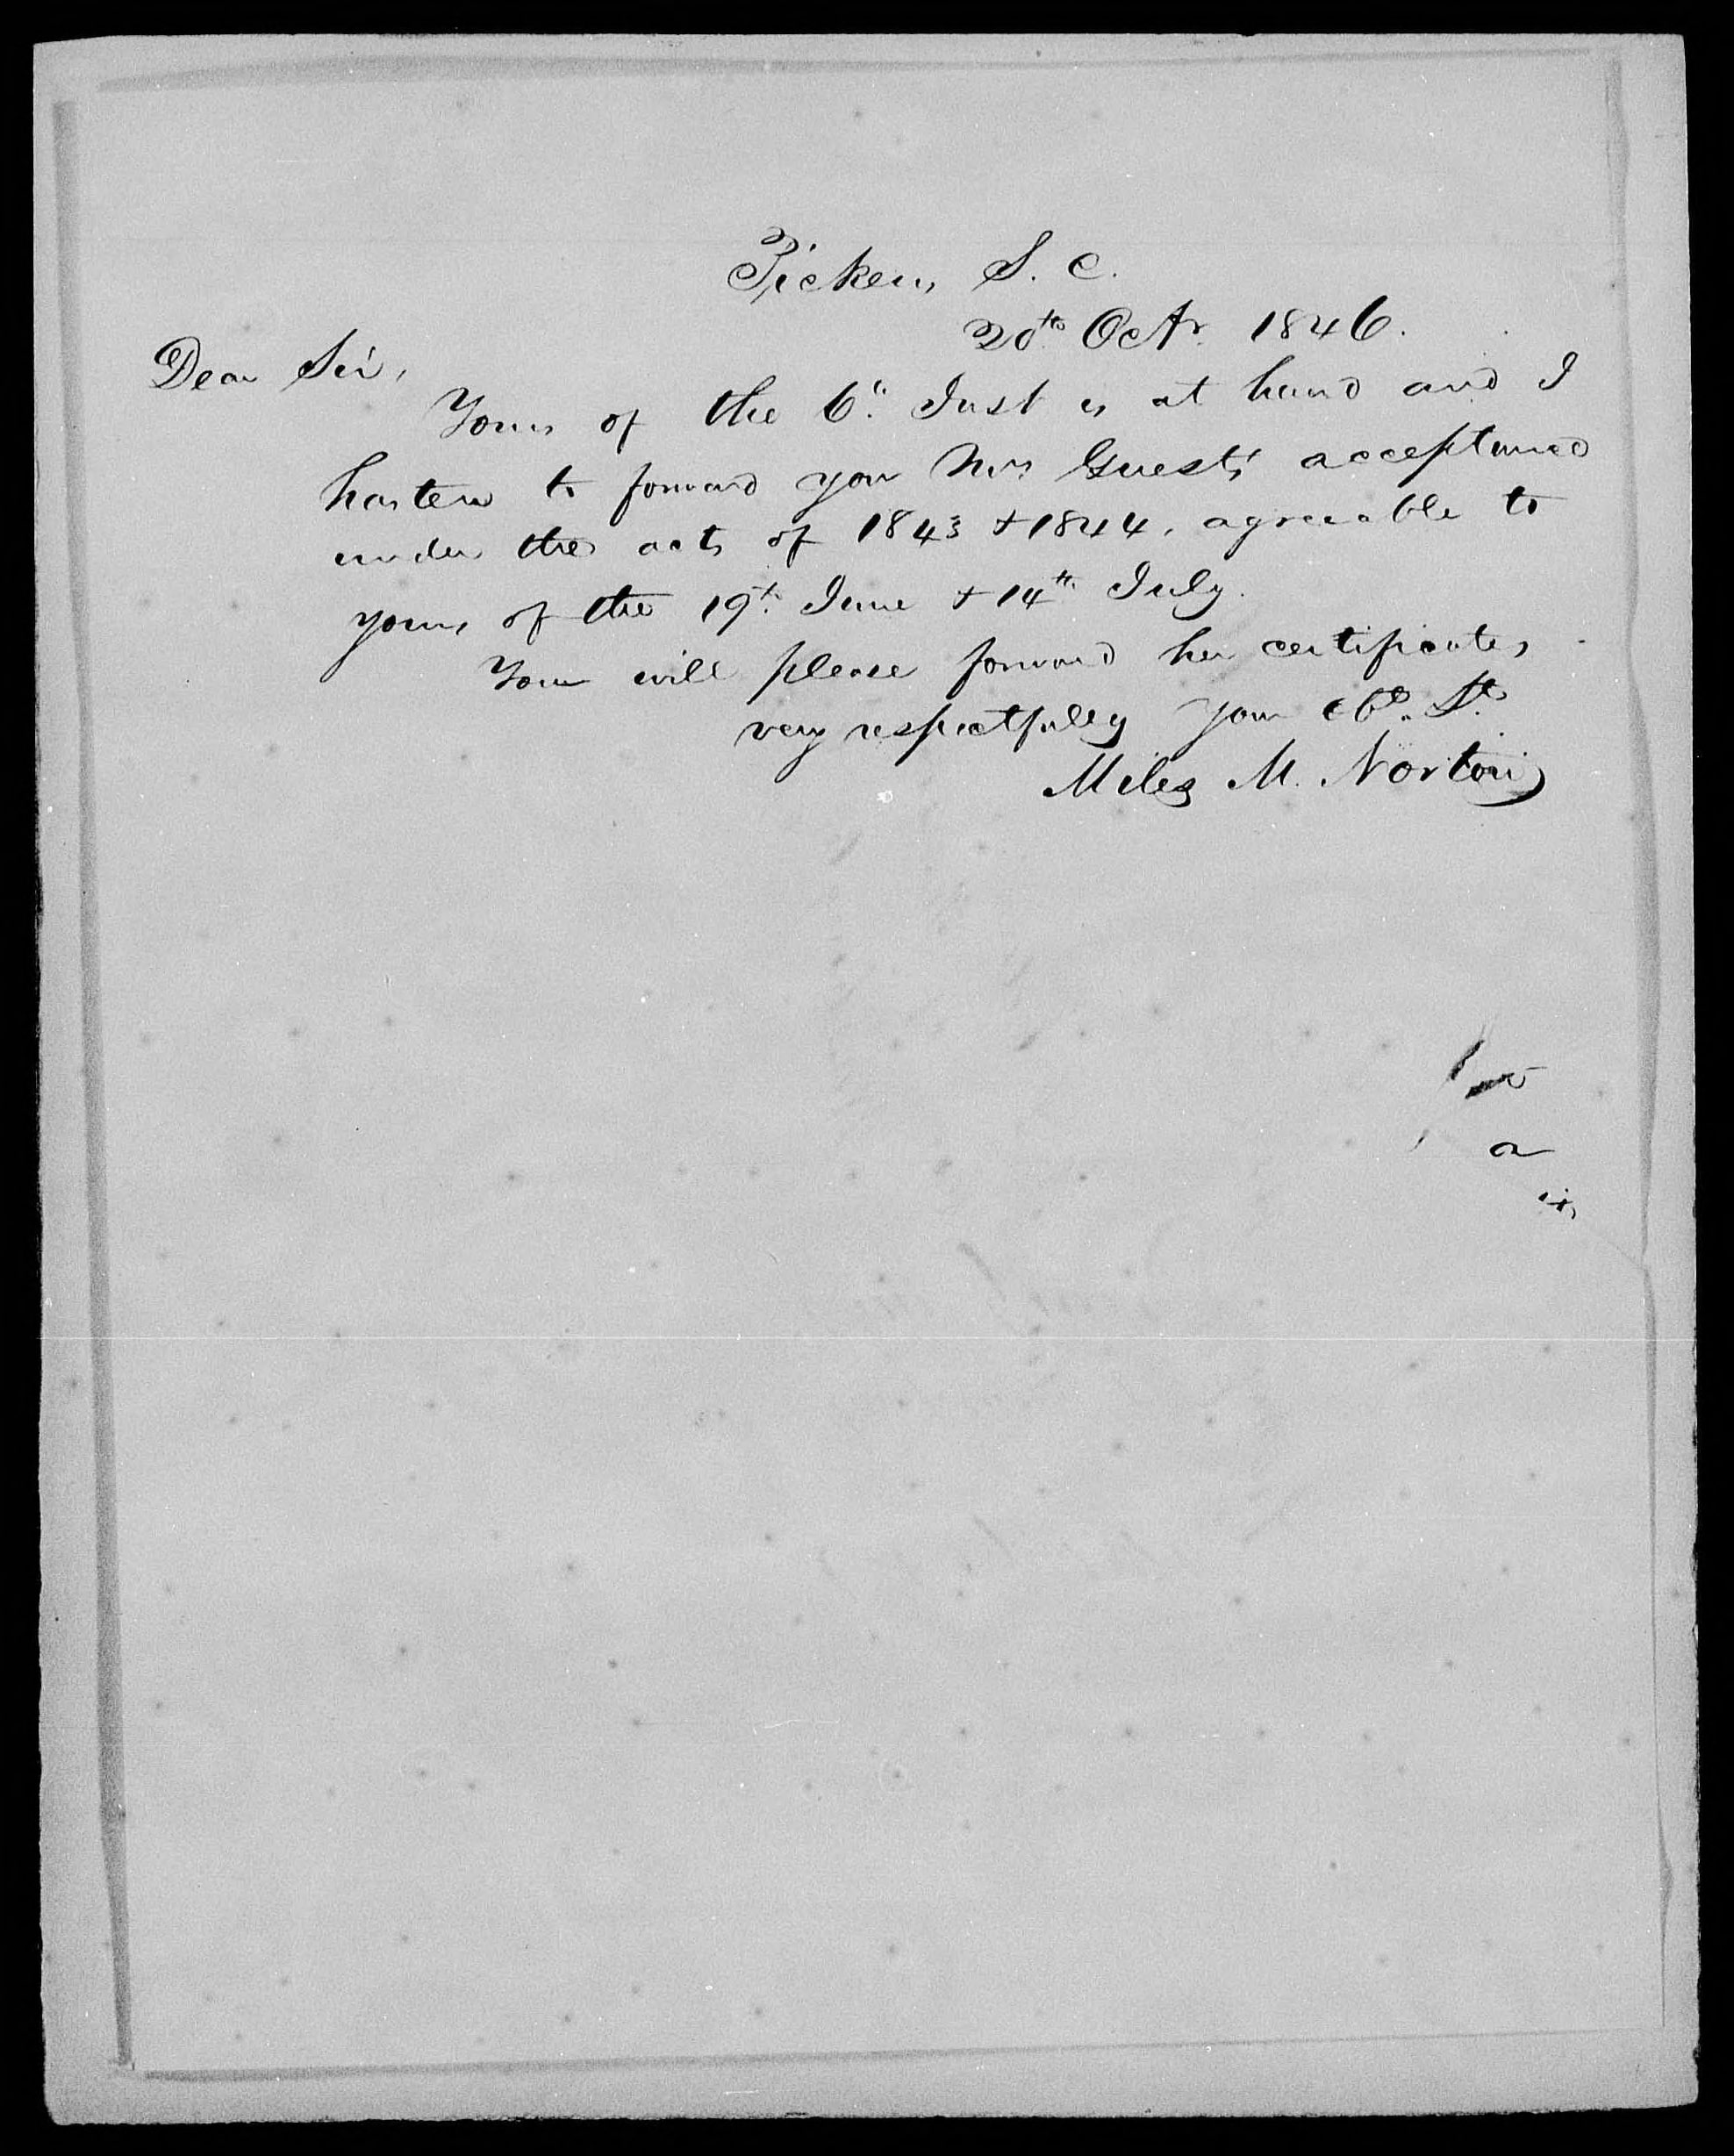 Pickens S. C.
20th Octr. 1846.
Dear Sir,
Yours of the 6th Inst is at hand and I
hasten to forward you Mrs Guests acceptance
under the acts of 1843 & 1844, agreeable to
yours of the 19th June & 14th July.
You will please forward her certificates
very respectfully your Obt. St.
Miles M. Norton